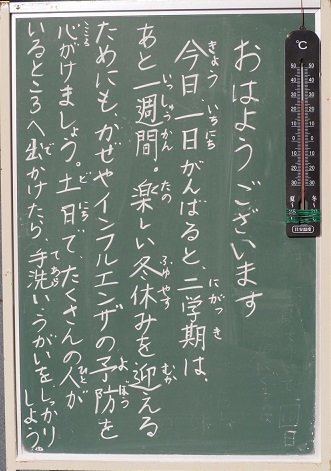 おはようございます
今日一日がんばると、二学期は、
あと一週間。楽しい冬休みを迎える
ためにもかぜやインフルエンザの予防を
心がけましょう。土日で、たくさんの人が
いるところへ出かけたら手洗い、うがいをしっかり
しよう。
きょう いちにち
にがっき
いっしゅうかん
たの
ふゆやす
むか
よぼう
こころ
どにち
ひと
で
てあら
℃
50
40
30
20
10
0
10
20
30
夏
冬